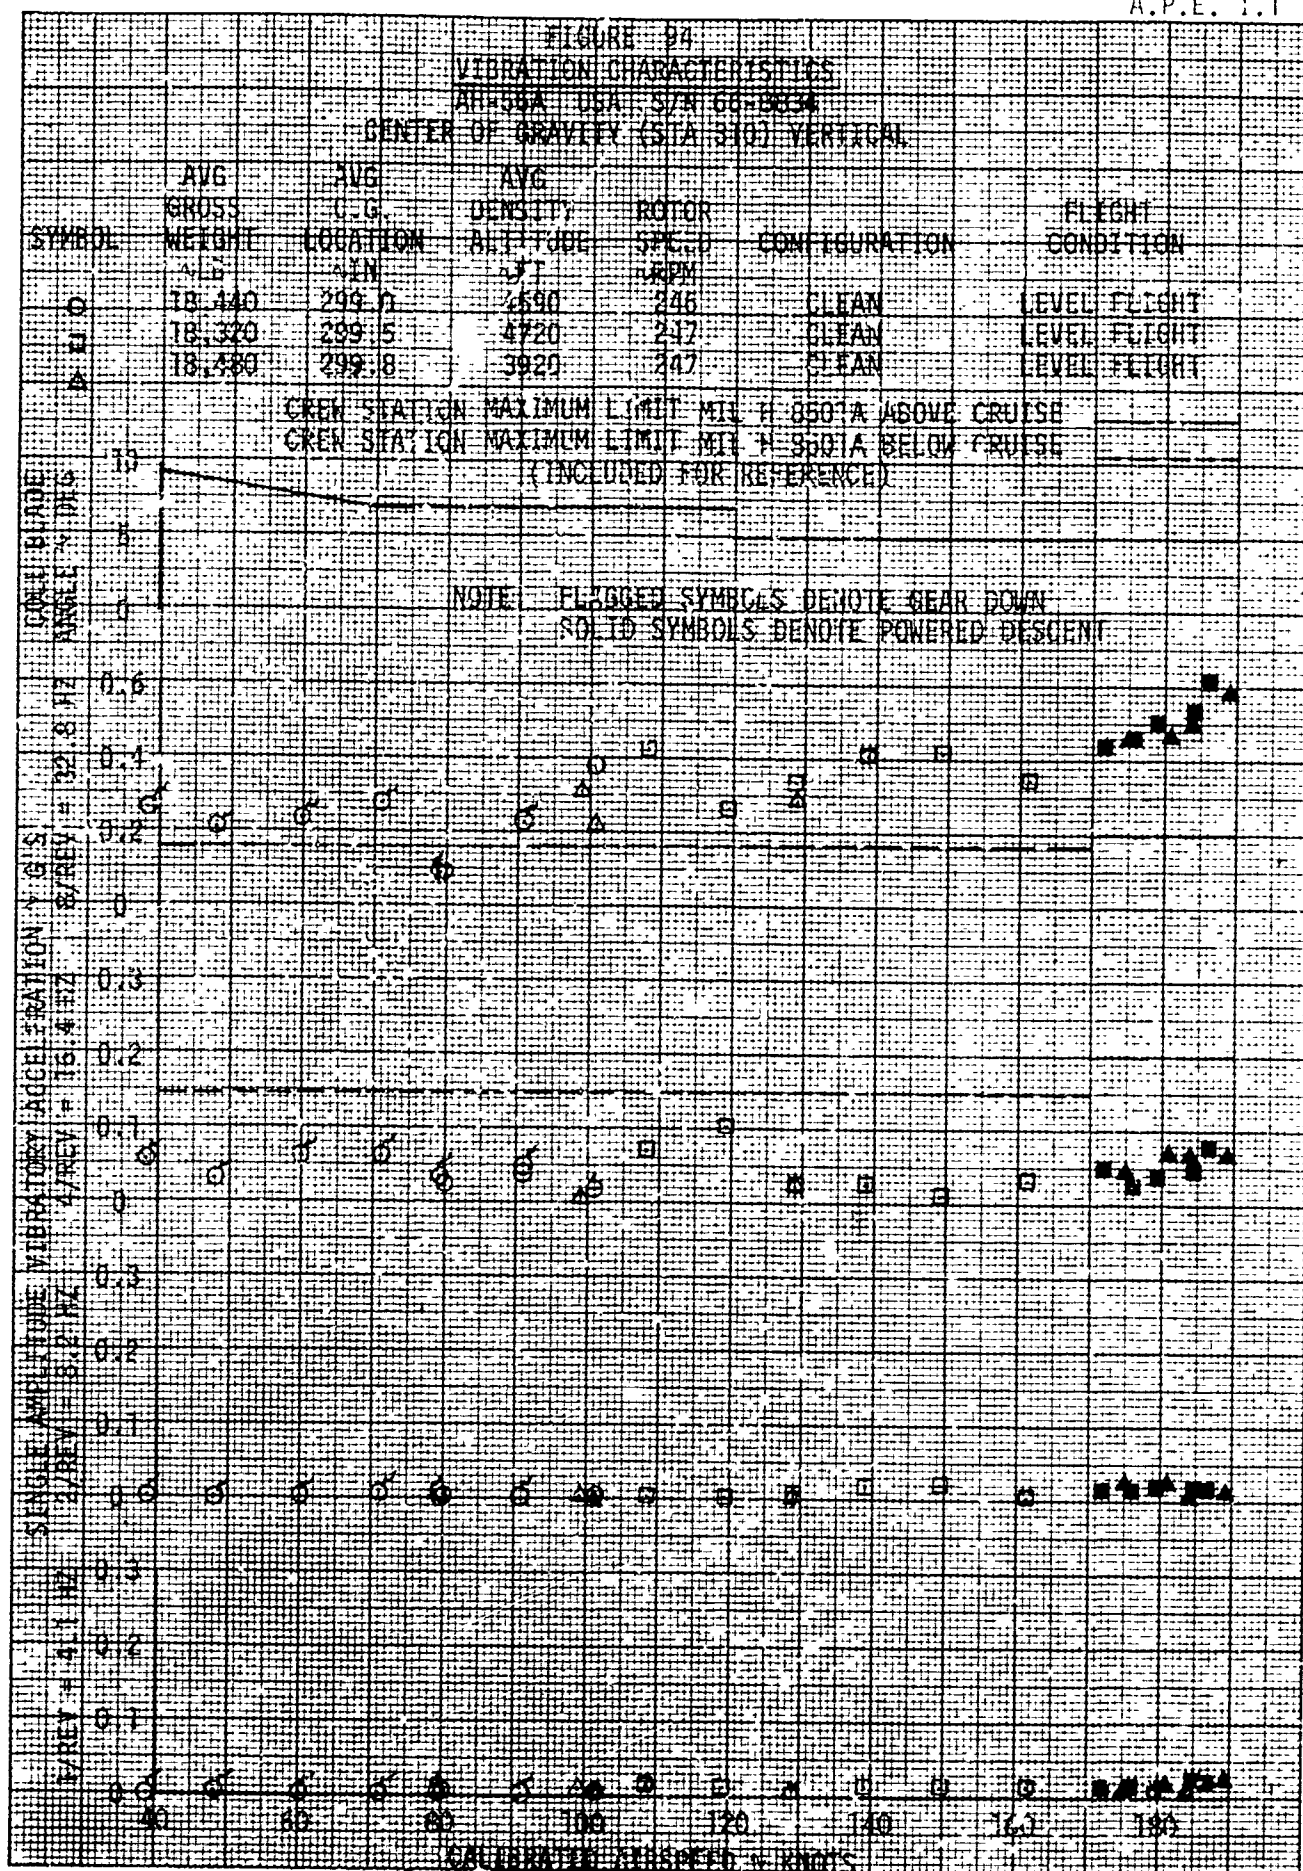 A.P.E. 1.1
FIGURE 94
VIBRATION CHARACTERISTICS
AH-56A USA S/N 66-8834
CENTER OF GRAVITY (STA 310) VERTICAL
AVG AVG AVG
GROSS C.G. DENSITY ROTOR FLIGHT
SYMBOL WEIGHT LOCATION ALTITUDE SPEED CONFIGURATION CONDITION
~LB ~IN ~FT ~RPM
18,440 299.0 4690 246 CLEAN LEVEL FLIGHT
18,320 299.5 4720 247 CLEAN LEVEL FLIGHT
18,480 299.8 3920 247 CLEAN LEVEL FLIGHT
CREW STATION MAXIMUM LIMIT MIL H 8501A ABOVE CRUISE
CREW STATION MAXIMUM LIMIT MIL H 8501A BELOW CRUISE
(INCLUDED FOR REFERENCE)
COLL BLADE
ANGLE ~ DEG
10
5
0
NOTE: FLAGGED SYMBOLS DENOTE GEAR DOWN
SOLID SYMBOLS DENOTE POWERED DESCENT
SINGLE AMPLITUDE VIBRATORY ACCELERATION ~ G'S
8/REV = 32.8 HZ
0.6
0.4
0.2
0
4/REV = 16.4 HZ
0.3
0.2
0.1
0
2/REV = 8.2 HZ
0.3
0.2
0.1
0
1/REV = 4.1 HZ
0.3
0.2
0.1
0
40 60 80 100 120 140 160 180
CALIBRATED AIRSPEED ~ KNOTS